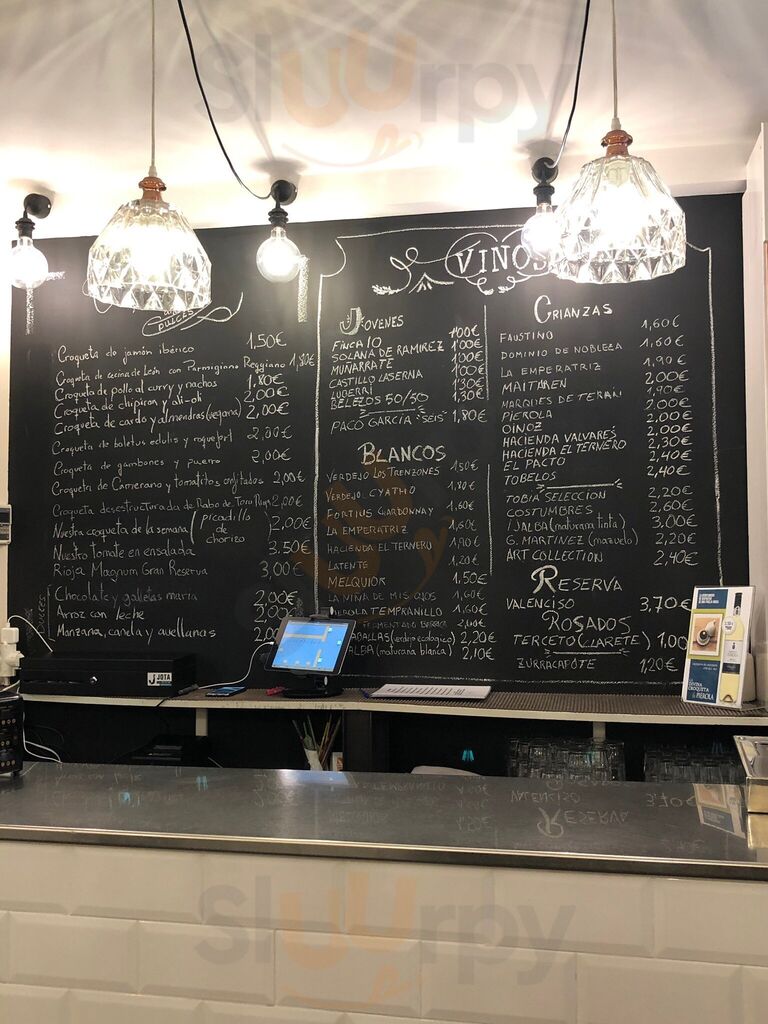 Sluurpy
DULCES
Croqueta de jamón ibérico 1,50€
Croqueta de cecina de León con Parmigiano Reggiano 1,80€
Croqueta de pollo al curry y nachos 1.80€
Croqueta de chipiron y ali-oli 2,00€
Croqueta de cardo y almendras (vegana) 2,00€
Croqueta de boletus edulis y roquefort 2,00€
Croqueta de gambones y puerro 2,00€
Croqueta de Camerano y tomatitos confitados 2,00€
Croqueta desestructurada de Rabo de Toro 2,00€
Nuestra croqueta de la semana / picadillo de chorizo 2,00€
Nuestro tomate en ensalada 3.50€
Rioja Magnum Gran Reserva 3,00€
DULCES
Chocolate y galletas maria 2,00€
Arroz con leche 2,00€
Manzana, canela y avellanas 2,0
VINOS
JOVENES
FINCA 10 1'00€
SOLANA DE RAMIREZ 1'00€
MUÑARRATE 1'00€
CASTILLO LASERNA 1'00€
LUBERRI 1'30€
BELEZOS 50/50 1.30€
PACO GARCIA "SEIS" 1,80€
BLANCOS
VERDEJO LOS TRENZONES 1,50€
VERDEJO CYATHO 1,80€
FORTIUS CHARDONNAY 1,60€
LA EMPERATRIZ 1,60€
HACIENDA EL TERNERO 1,90€
LATENTE 1,20€
MELQUIOR 1,50€
LA NIÑA DE MIS OJOS 1,60€
PIEROLA TEMPRANILLO 1,60€
FERMENTADO BARRICA 2,00€
(verdejo ecologico) 2,20€
JALBA (maturana blanca) 2,10€
CRIANZAS
FAUSTINO 1,60€
DOMINIO DE NOBLEZA 1,60€
LA EMPERATRIZ 1,90€
MAITAREN 2,00€
MARQUES DE TERÁN 1,90€
PIEROLA 2,00€
OINOZ 2,00€
HACIENDA VALVARES 2,00€
HACIENDA EL TERNERO 2,30€
EL PACTO 2,40€
TOBELOS 2,40€
TOBIA SELECCION 2,20€
COSTUMBRES 2,60€
iJALBA (maturana tinta) 3,00€
G. MARTINEZ (mazuelo) 2,20€
ART COLLECTION 2,40€
RESERVA
VALENCISO 3,70€
ROSADOS
TERCETO (CLARETE) 1,00
ZURRACAPOTE 1,20€
JOTA
DIVINA
CROQUETA
& PIEROLA
Sluurpy